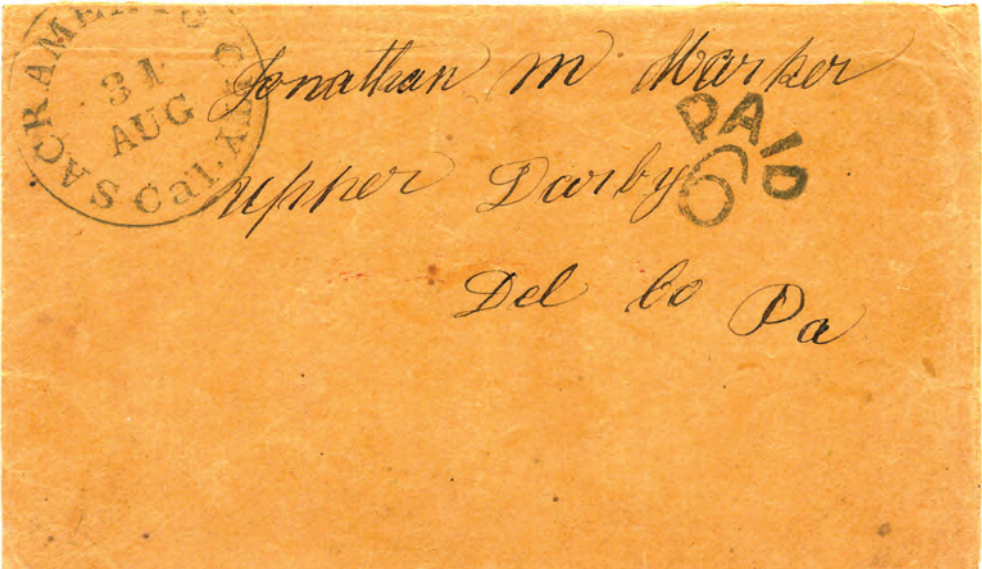 SACRAMENTO CITY Cal.
31
AUG
Jonathan m Marker
PAID
6
Upper Darby
Del Co Pa